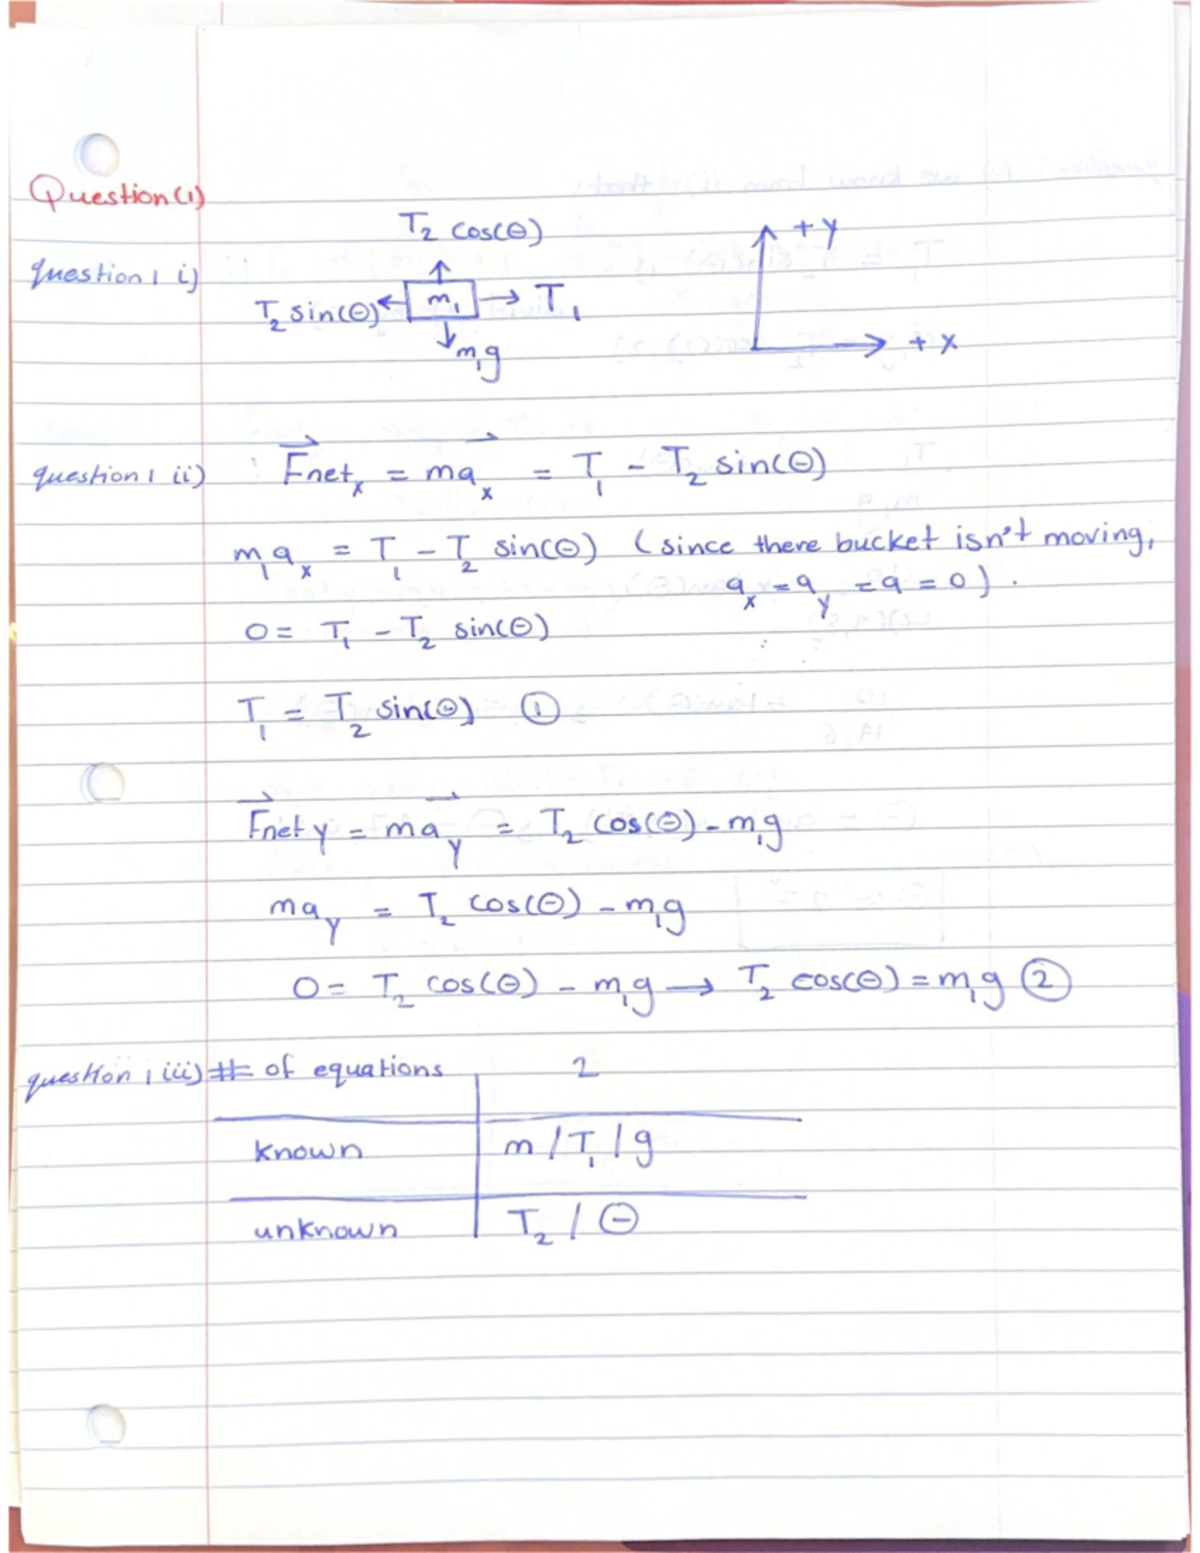 Question(1)
question 1 i)
T₂ cos(θ)
T₂ sin(θ) m₁ T₁
m₁g
+y
+x
question 1 ii) Fnetₓ = maₓ = T₁ - T₂ sin(θ)
m₁aₓ = T₁ - T₂ sin(θ) (since there bucket isn't moving,
aₓ = a_y = a = 0).
0 = T₁ - T₂ sin(θ)
T₁ = T₂ sin(θ) ①
Fnet y = ma_y = T₂ cos(θ) - m₁g
ma_y = T₂ cos(θ) - m₁g
0 = T₂ cos(θ) - m₁g → T₂ cos(θ) = m₁g ②
question 1 iii) # of equations 2
known m / T₁ / g
unknown T₂ / θ